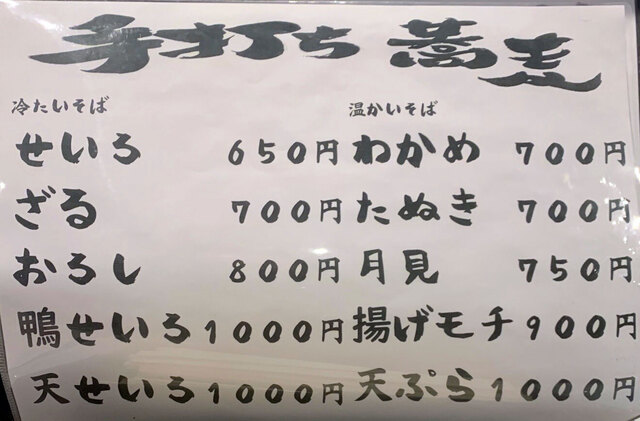 手打ち 蕎麦
冷たいそば
せいろ 650円
ざる 700円
おろし 800円
鴨せいろ 1000円
天せいろ 1000円
温かいそば
わかめ 700円
たぬき 700円
月見 750円
揚げモチ 900円
天ぷら 1000円